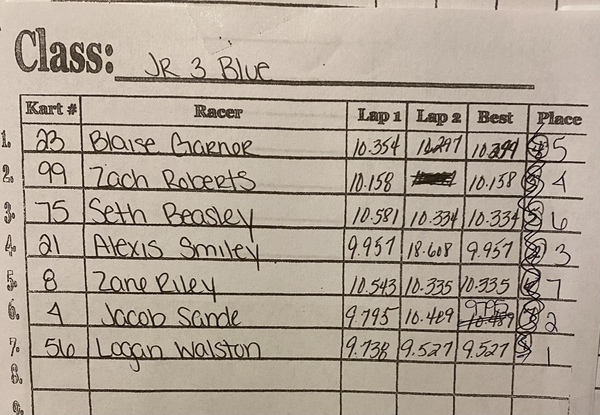 Class: JR 3 Blue
Kart # Racer Lap 1 Lap 2 Best Place
1. 23 Blaise Garner 10.354 10.297 10.297 5
2. 99 Zach Roberts 10.158 10.158 4
3. 75 Seth Beasley 10.581 10.334 10.334 6
4. 21 Alexis Smiley 9.957 18.608 9.957 3
5. 8 Zane Riley 10.543 10.335 10.335 7
6. 4 Jacob Sande 9.795 10.489 9.795 2
7. 56 Logan Walston 9.738 9.527 9.527 1
8.
9.